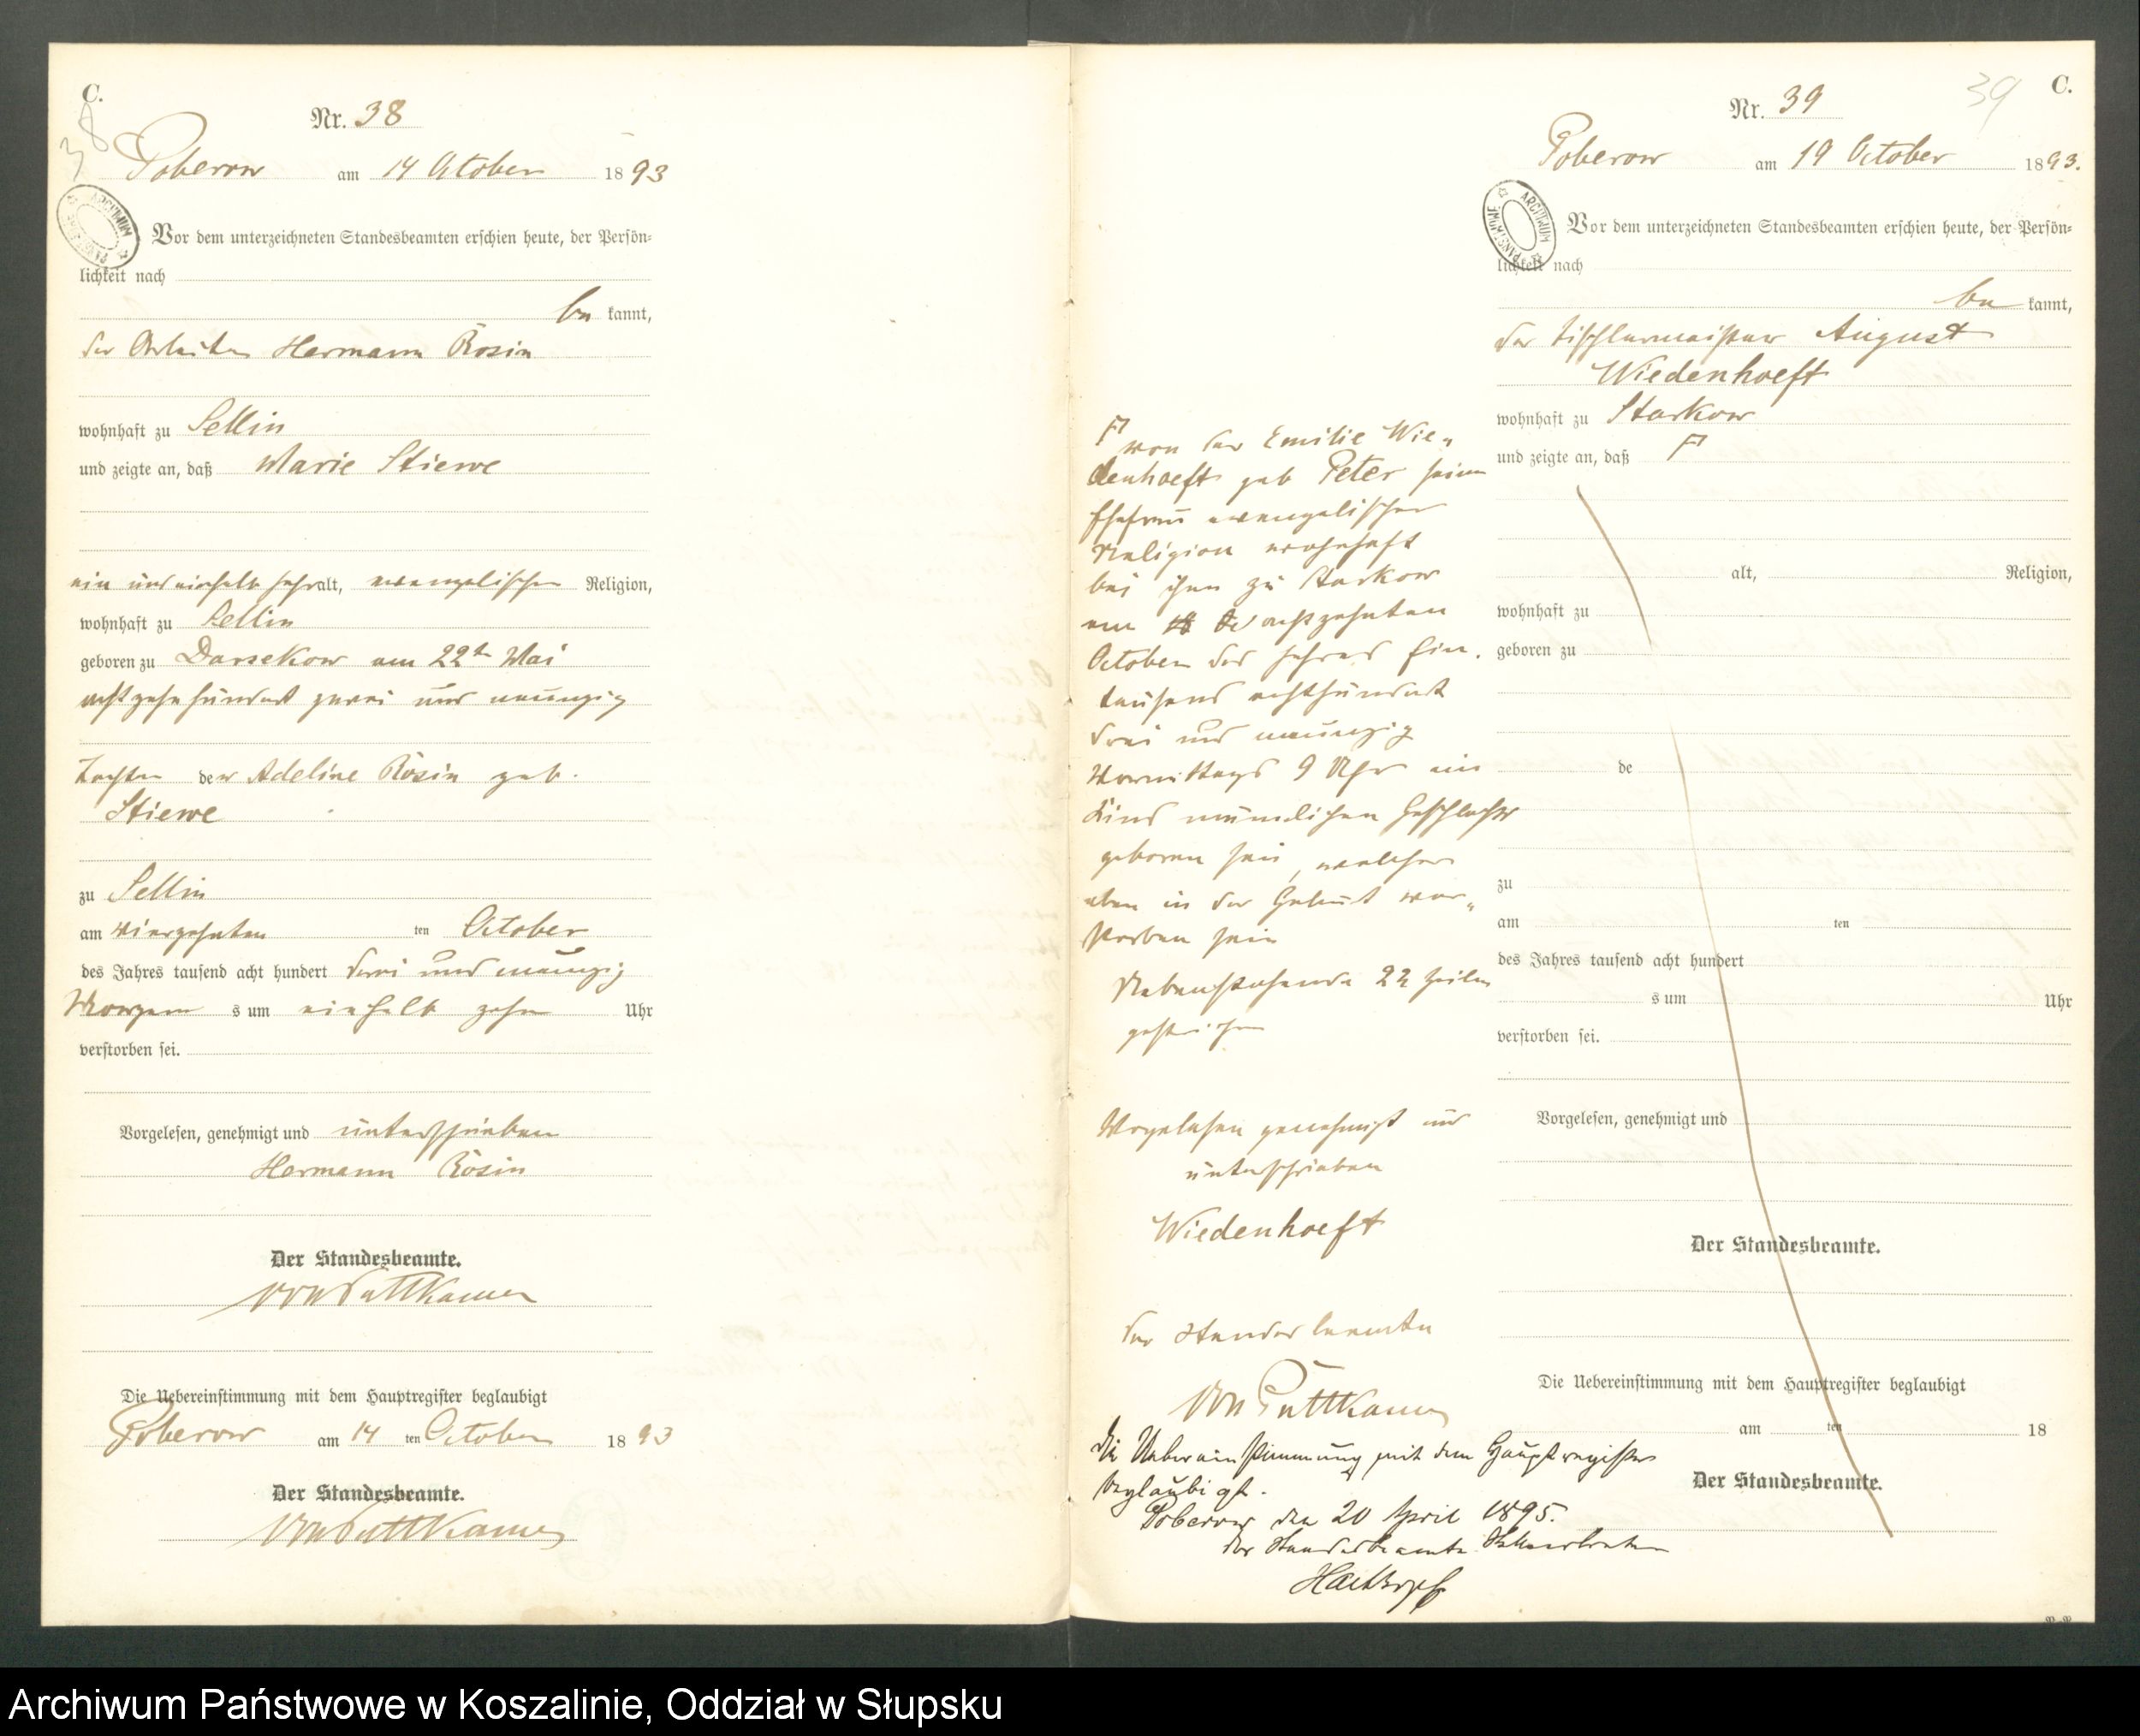 C.
38
Nr. 38
Poberow am 14 October 1893
ARCHIWUM PAŃSTWOWE
Vor dem unterzeichneten Standesbeamten erschien heute, der Persön-
lichkeit nach
be kannt,
der Arbeiter Hermann Rosin
wohnhaft zu Sellin
und zeigte an, daß Marie Stiewe
ein und einhalb Jahr alt, evangelischer Religion,
wohnhaft zu Sellin
geboren zu Darsekow am 22ten Mai
achtzehnhundert zwei und neunzig
Tochter der Adeline Rosin geb.
Stiewe
zu Sellin
am vierzehnten ten October
des Jahres tausend acht hundert drei und neunzig
Morgen s um einhalb zehn Uhr
verstorben sei.
Vorgelesen, genehmigt und unterschrieben
Hermann Rosin
Der Standesbeamte.
von Puttkamer
Die Uebereinstimmung mit dem Hauptregister beglaubigt
Poberow am 14 ten October 1893
Der Standesbeamte.
von Puttkamer
C.
39
Nr. 39
Poberow am 19 October 1893.
ARCHIWUM PAŃSTWOWE
Vor dem unterzeichneten Standesbeamten erschien heute, der Persön-
lichkeit nach
be kannt,
der Tischlermeister August
Wiedenhoeft
wohnhaft zu Starkow
und zeigte an, daß
alt, Religion,
wohnhaft zu
geboren zu
de
zu
am ten
des Jahres tausend acht hundert
s um Uhr
verstorben sei.
Vorgelesen, genehmigt und
Der Standesbeamte.
Die Uebereinstimmung mit dem Hauptregister beglaubigt
am ten 18
Der Standesbeamte.
von der Emilie Wie-
denhoeft geb Peter seiner
Ehefrau evangelischer
Religion wohnhaft
bei ihm zu Starkow
am achtzehnten
October des Jahres Ein-
tausend achthundert
drei und neunzig
Vormittags 9 Uhr ein
Kind männlichen Geschlechts
geboren sei, welches
eben in der Geburt ver-
storben sein
Nebenstehende 22 Zeilen
gestrichen
Vorgelesen genehmigt und
unterschrieben
Wiedenhoeft
der Standesbeamte
von Puttkamer
Die Uebereinstimmung mit dem Hauptregister
beglaubigt.
Poberow den 20 April 1895.
Der Standesbeamte
Archiwum Państwowe w Koszalinie, Oddział w Słupsku